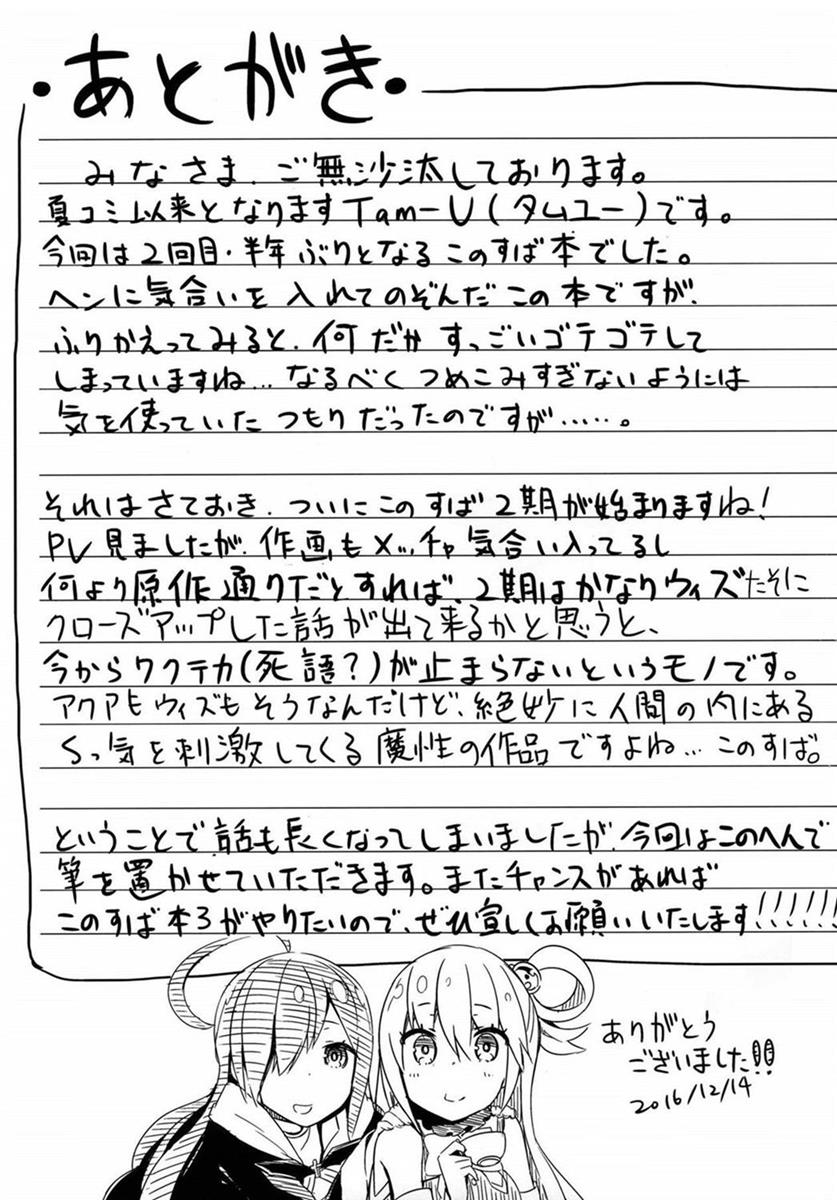 ・あとがき・
みなさま、ご無沙汰しております。
夏コミ以来となりますTam-U(タムユー)です。
今回は2回目・半年ぶりとなるこのすば本でした。
ヘンに気合いを入れてのぞんだこの本ですが、
ふりかえってみると、何だかすっごいゴテゴテして
しまっていますね…なるべくつめこみすぎないようには
気を使っていたつもりだったのですが……。
それはさておき、ついにこのすば2期が始まりますね!
PV見ましたが、作画もメッチャ気合い入ってるし
何より原作通りだとすれば、2期はかなりウィズたそに
クローズアップした話が出て来るかと思うと、
今からワクテカ(死語?)が止まらないというモノです。
アクアもウィズもそうなんだけど、絶妙に人間の内にある
Sっ気を刺激してくる魔性の作品ですよね…このすば。
ということで話も長くなってしまいましたが、今回はこのへんで
筆を置かせていただきます。またチャンスがあれば
このすば本3がやりたいので、ぜひ宜しくお願いいたします!!!!!!
ありがとう
ございました!!
2016/12/14